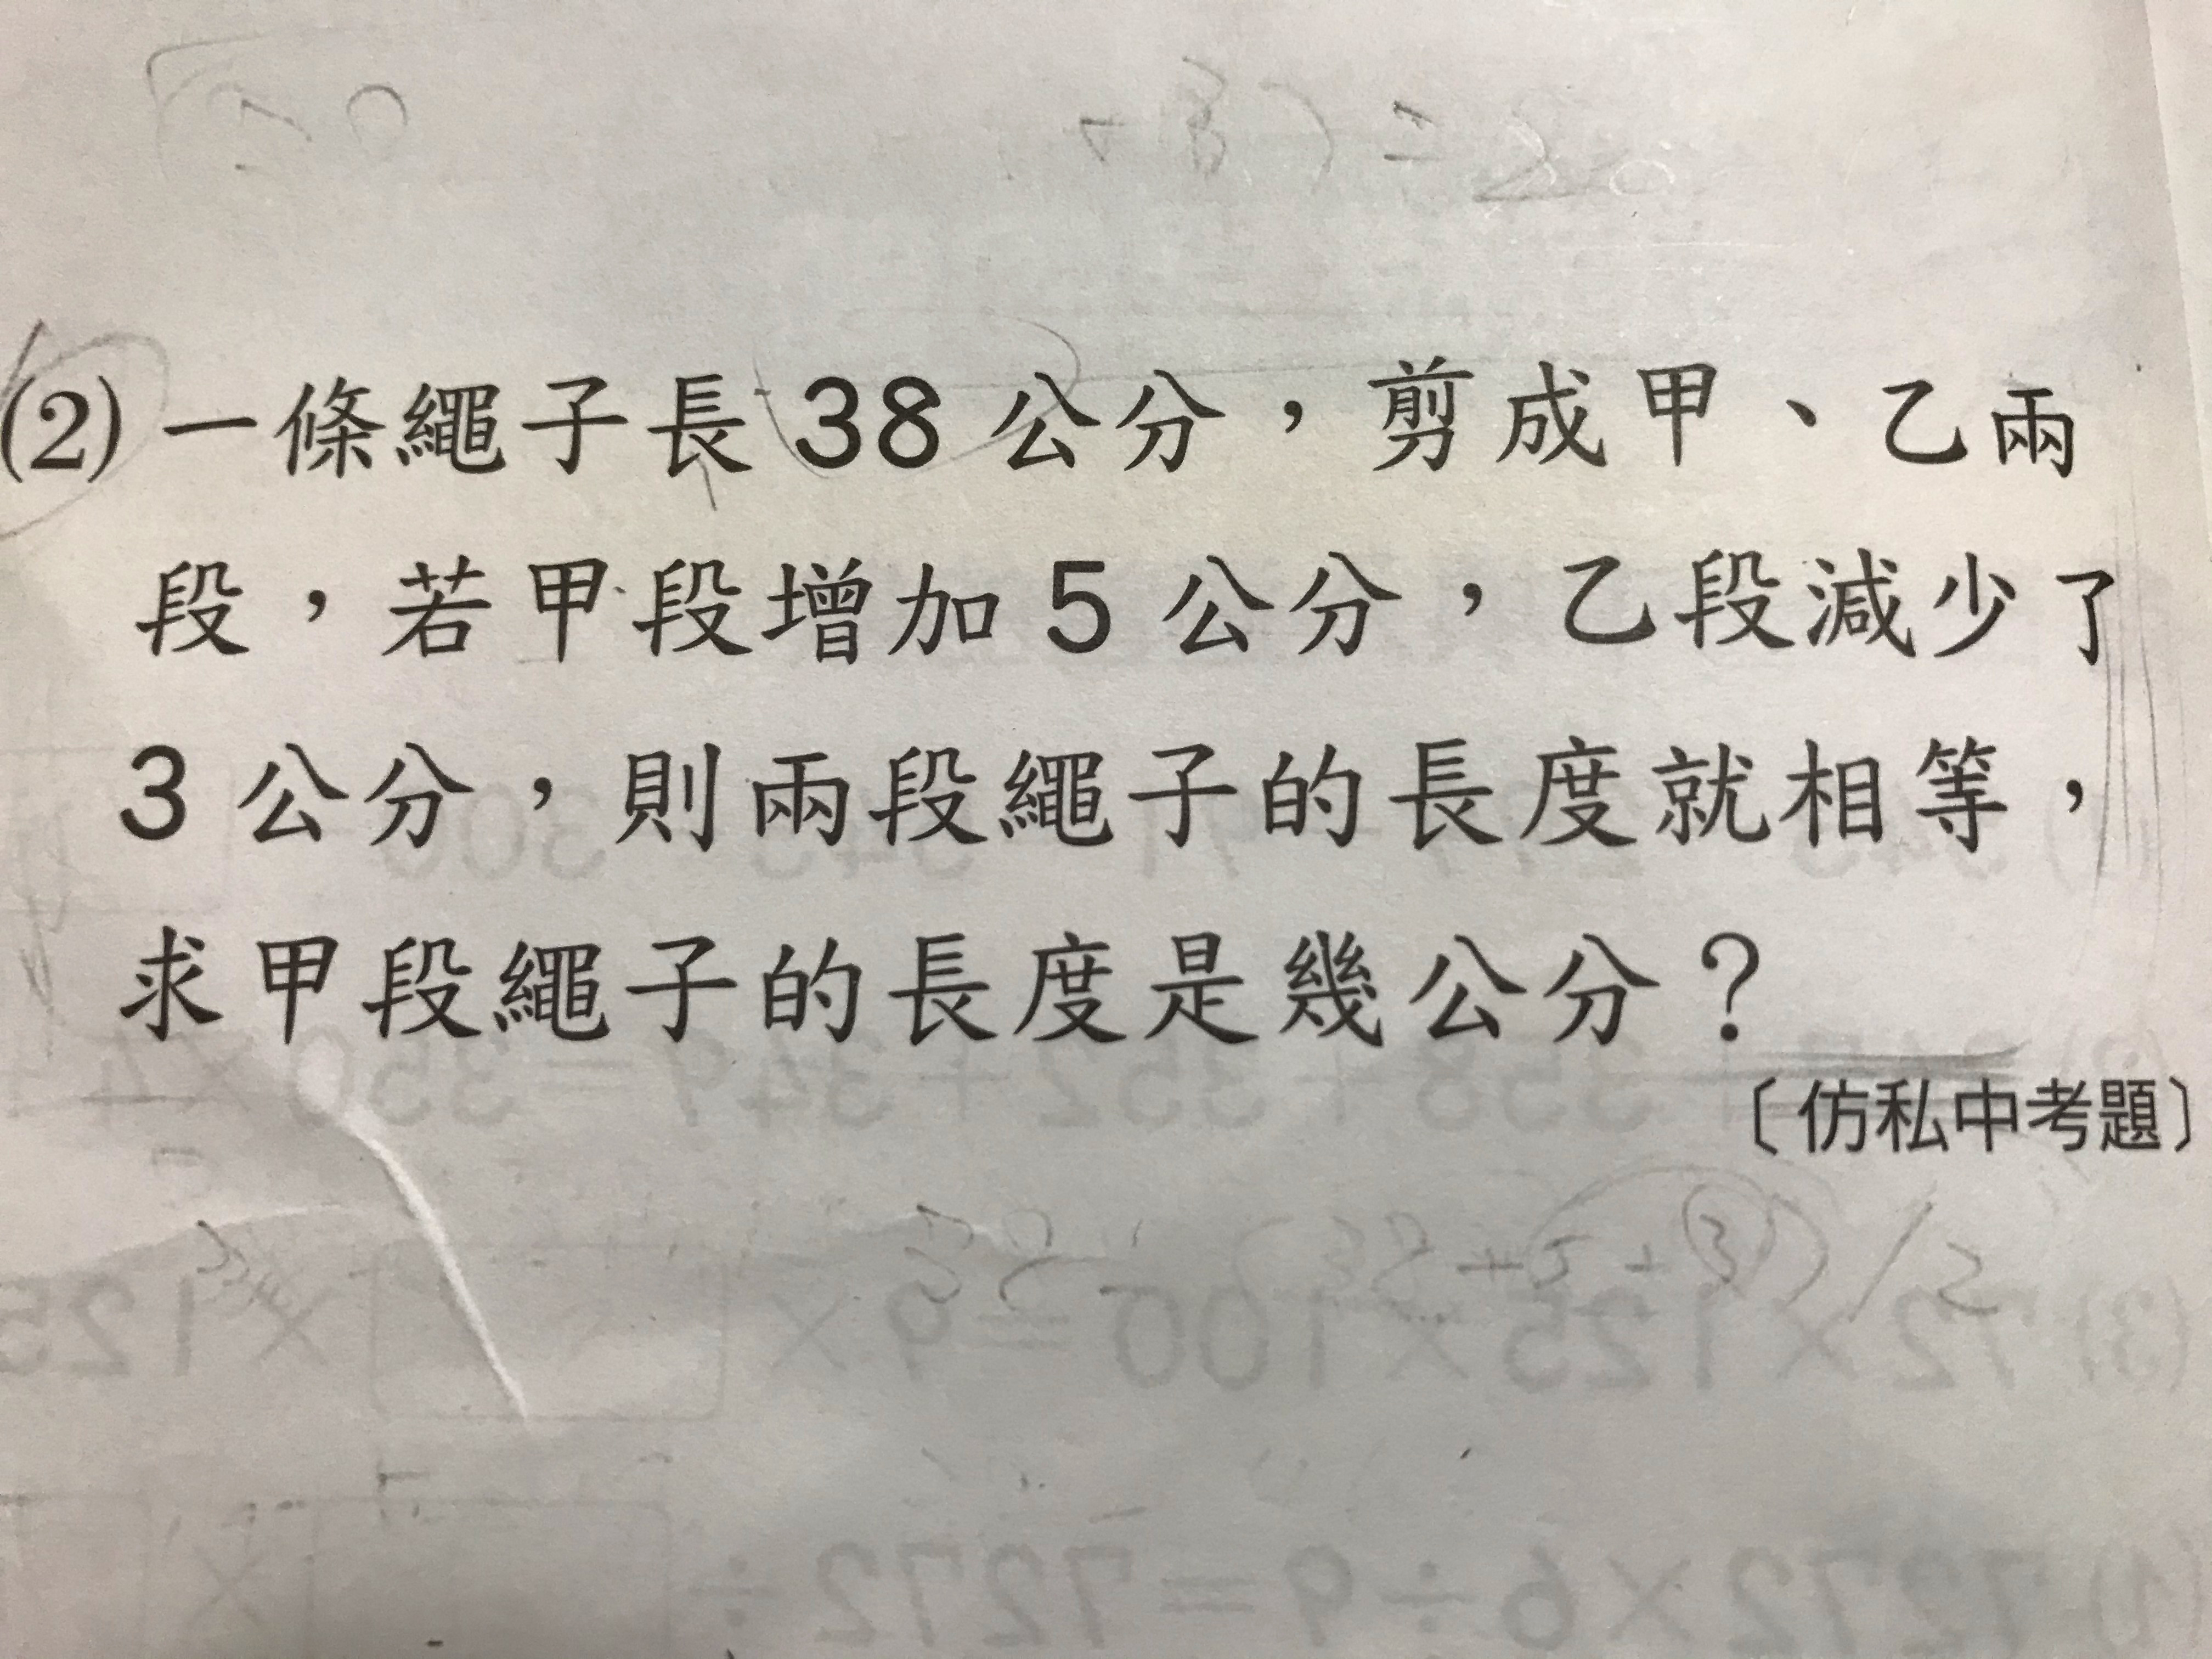 (2) 一條繩子長 38 公分，剪成甲、乙兩
段，若甲段增加 5 公分，乙段減少了
3 公分，則兩段繩子的長度就相等，
求甲段繩子的長度是幾公分？
〔仿私中考題〕